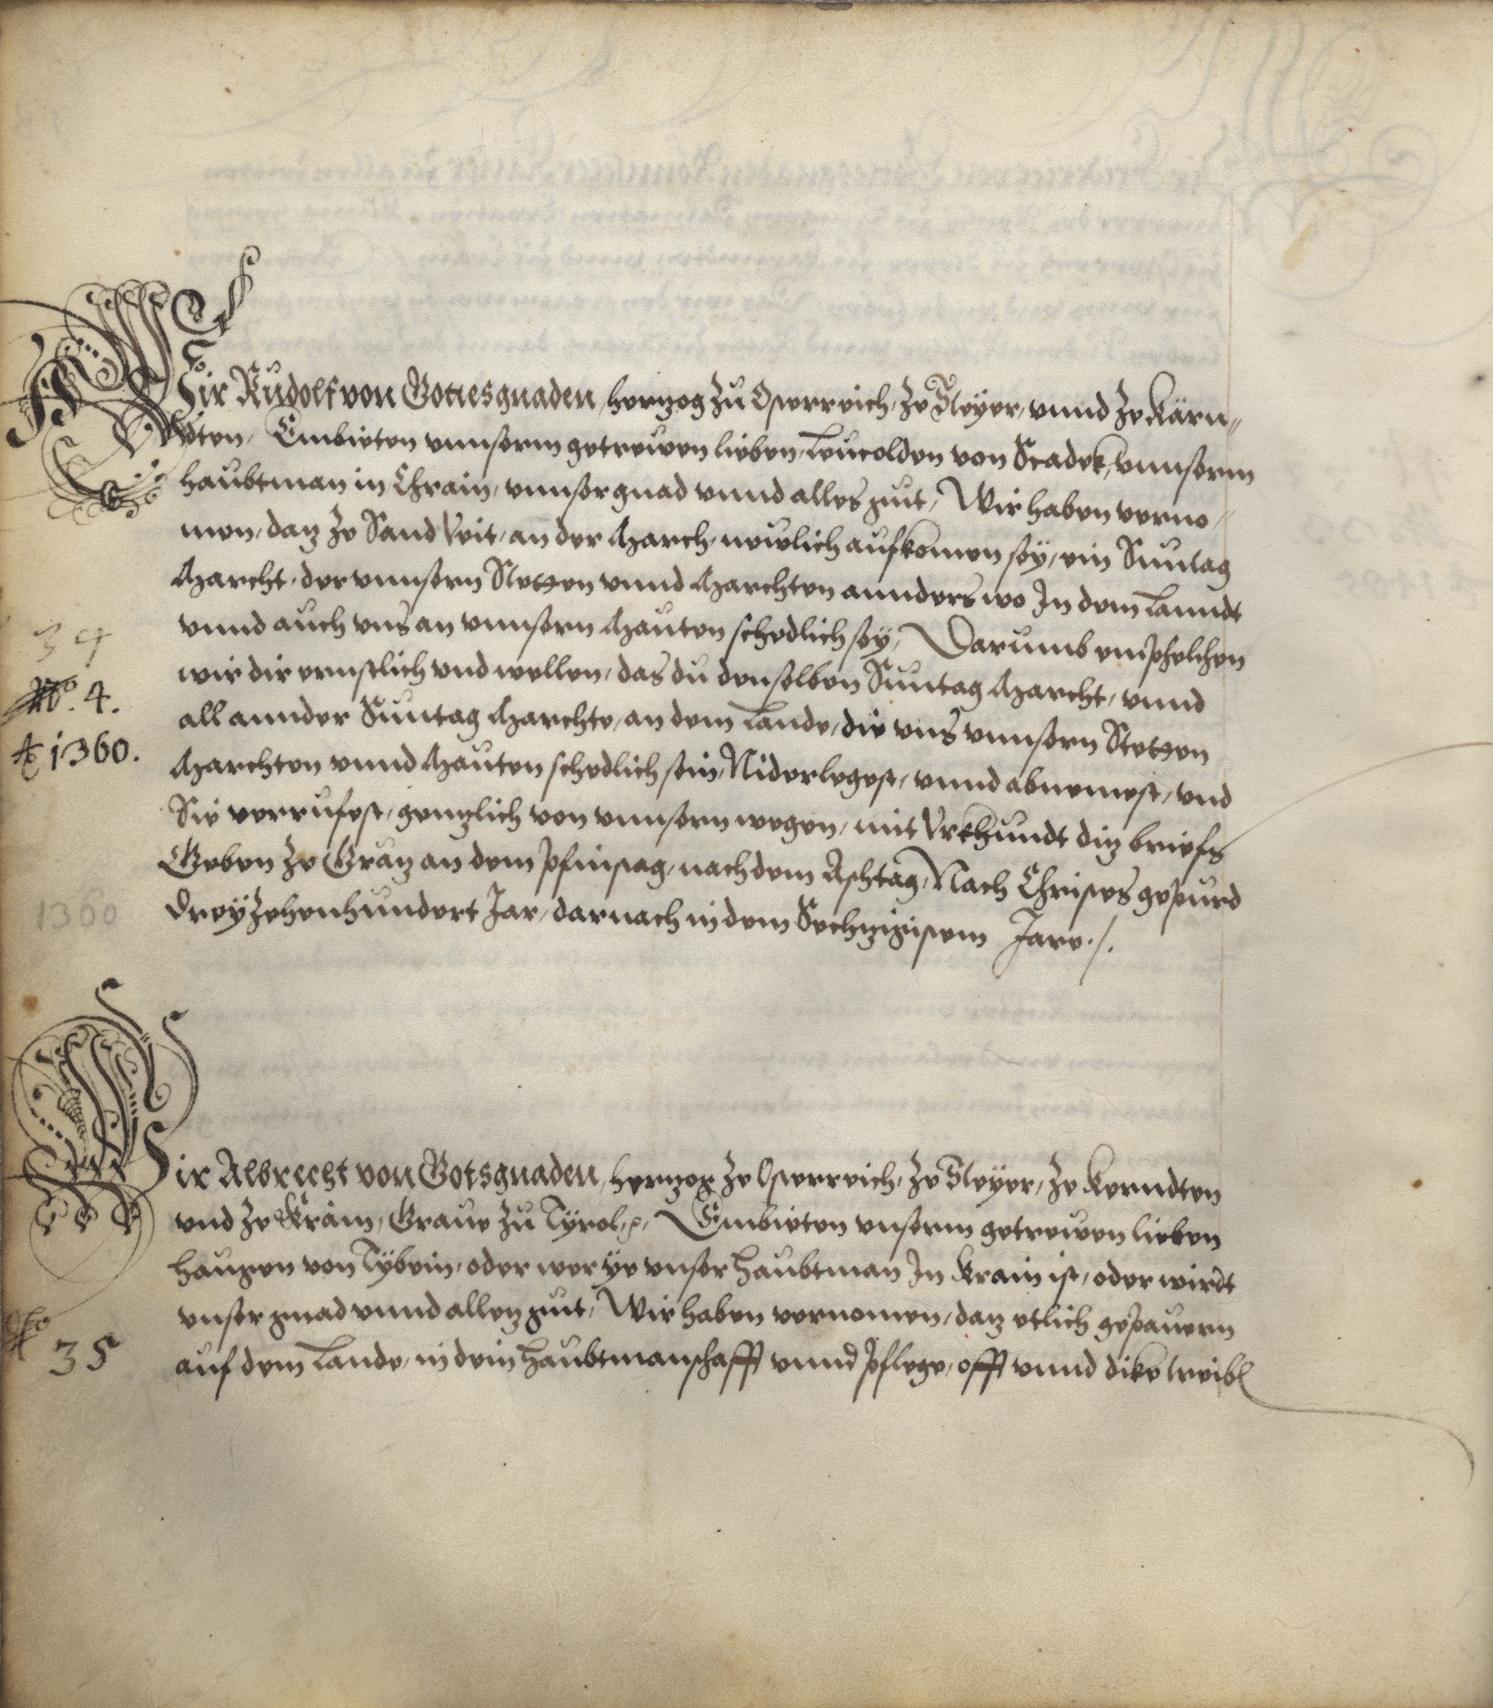 Wir Rudolf von Gottes gnaden, hertzog zu Osterreich, ze Steyer, vnnd ze Kärn„
dten, Embieten vnnserm getrewen lieben, Leutolden von Stadek, vnnserm
haubtman in Chrain, vnnser gnad vnnd alles gut, Wir haben verno„
men, daz ze Sand Veit, an der March, newlich aufkomen sey, ein Suntag
Marcht, der vnnsern Stetten vnnd Marchten annderswo In dem Lanndt
vnnd auch vns an vnnsern Mauten schedlich sey, Darumb emphelchen
34
wir dir ernstlich vnd wellen, das du denselben Suntag Marcht, vnnd
No. 4.
all annder Suntag Marchte, an dem Lande, die vns vnnsern Stetten
Aº 1360.
Marchten vnnd Mauten schedlich sein, Niderlegest, vnnd abnemest, vnd
Sie verrufest, gentzlich von vnnsern wegen, mit Vrkhundt ditz briefs
Geben ze Grätz an dem Pfinstag, nach dem Aschtag, Nach Christes gepurd
1360
Dreyzehenhundert Jar, darnach in dem Sechtzigistem Jare ./.
Wir Albrecht von Gots gnaden, hertzog ze Osterreich, ze Steyer, ze Kerndten
vnd ze Krain, Graue zu Tyrol, Embieten vnserm getrewen lieben
haugen von Tybein, oder wer ye vnser haubtman In Krain ist, oder wirdt
vnser gnad vnnd allez gut, Wir haben vernomen, daz etlich gepauern
35
auf dem Lande, in dein haubtmanschafft vnnd Pflege, offt vnnd dike treib